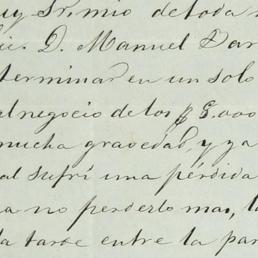 uy Sr. mio de toda
Lic. D. Manuel
terminar en un solo
al negocio de los $ 5.000
mucha gravedad, y ya
al sufrí una pérdida
a no perderlo mas, l
la tarde entre la par